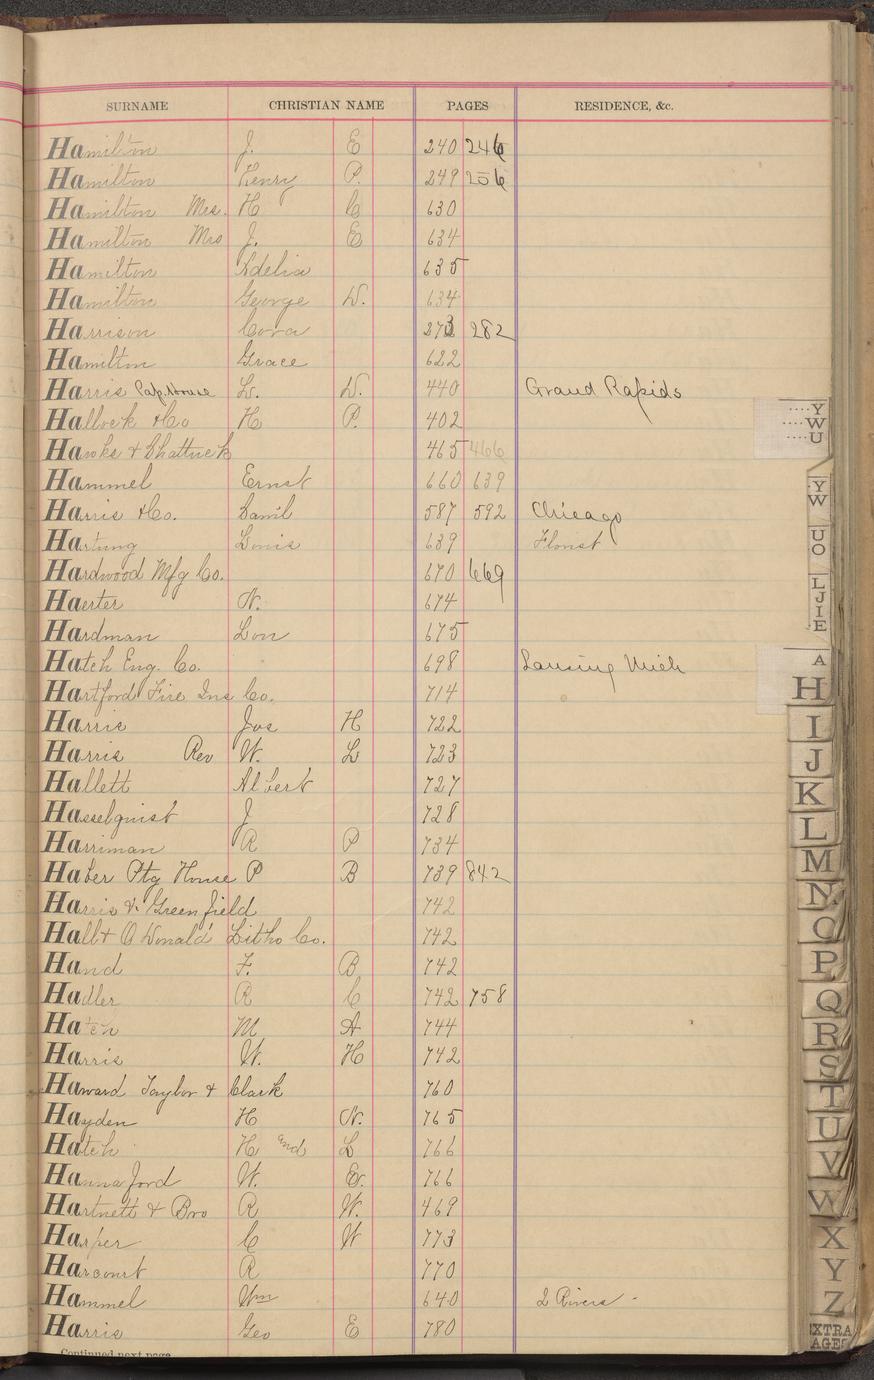 SURNAME CHRISTIAN NAME PAGES RESIDENCE, &c.
Hamilton J. E 240 246
Hamilton Henry P. 249 256
Hamilton Mrs. H C 630
Hamilton Mrs J. E 634
Hamilton Adelia 635
Hamilton George W. 634
Harrison Cora 273 282
Hamilton Grace 622
Harris Pap. House L. W. 440 Grand Rapids
Hallock & Co H P. 402
Hawks & Shattuck 465 466
Hammel Ernst 660 639
Harris & Co. Saml 587 592 Chicago
Hartung Louis 639 Florist
Hardwood Mfg Co. 670 669
Haerter N. 674
Hardman Lon 675
Hatch Eng. Co. 698 Lansing Mich
Hartford Fire Ins Co. 714
Harris Jos H 722
Harris Rev W. L 723
Hallett Albert 727
Hasselquist J 728
Harriman R P 734
Haber Ptg House P B 739 842
Harris & Greenfield 742
Hall & O Donald Litho Co. 742
Hand F. B 742
Hadler R C 742 758
Hatch M A 744
Harris W. H 742
Haward Taylor & Clark 760
Hayden H N. 765
Hatch H and L 766
Hannaford W. E. 766
Hartnett & Bro R W. 469
Harper C W 773
Harcourt R 770
Hammel Wm 640 2 Rivers -
Harris Geo E 780
Continued next page
Y
W
U
Y
W
U
O
L
J
I
E
A
H
I
J
K
L
M
N
O
P
Q
R
S
T
U
V
W
X
Y
Z
EXTRA
AGES